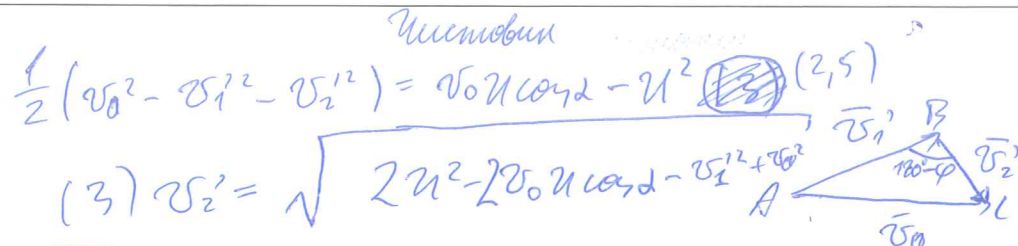 Чистовик
1/2 (v₀² - v₁'² - v₂'²) = v₀ u cos α - u² (2,5)
(3) v₂' = √(2u² - 2v₀ u cos α - v₁'² + v₀²)
B
v̄₁' v̄₂'
180°-φ
A C
v̄₀